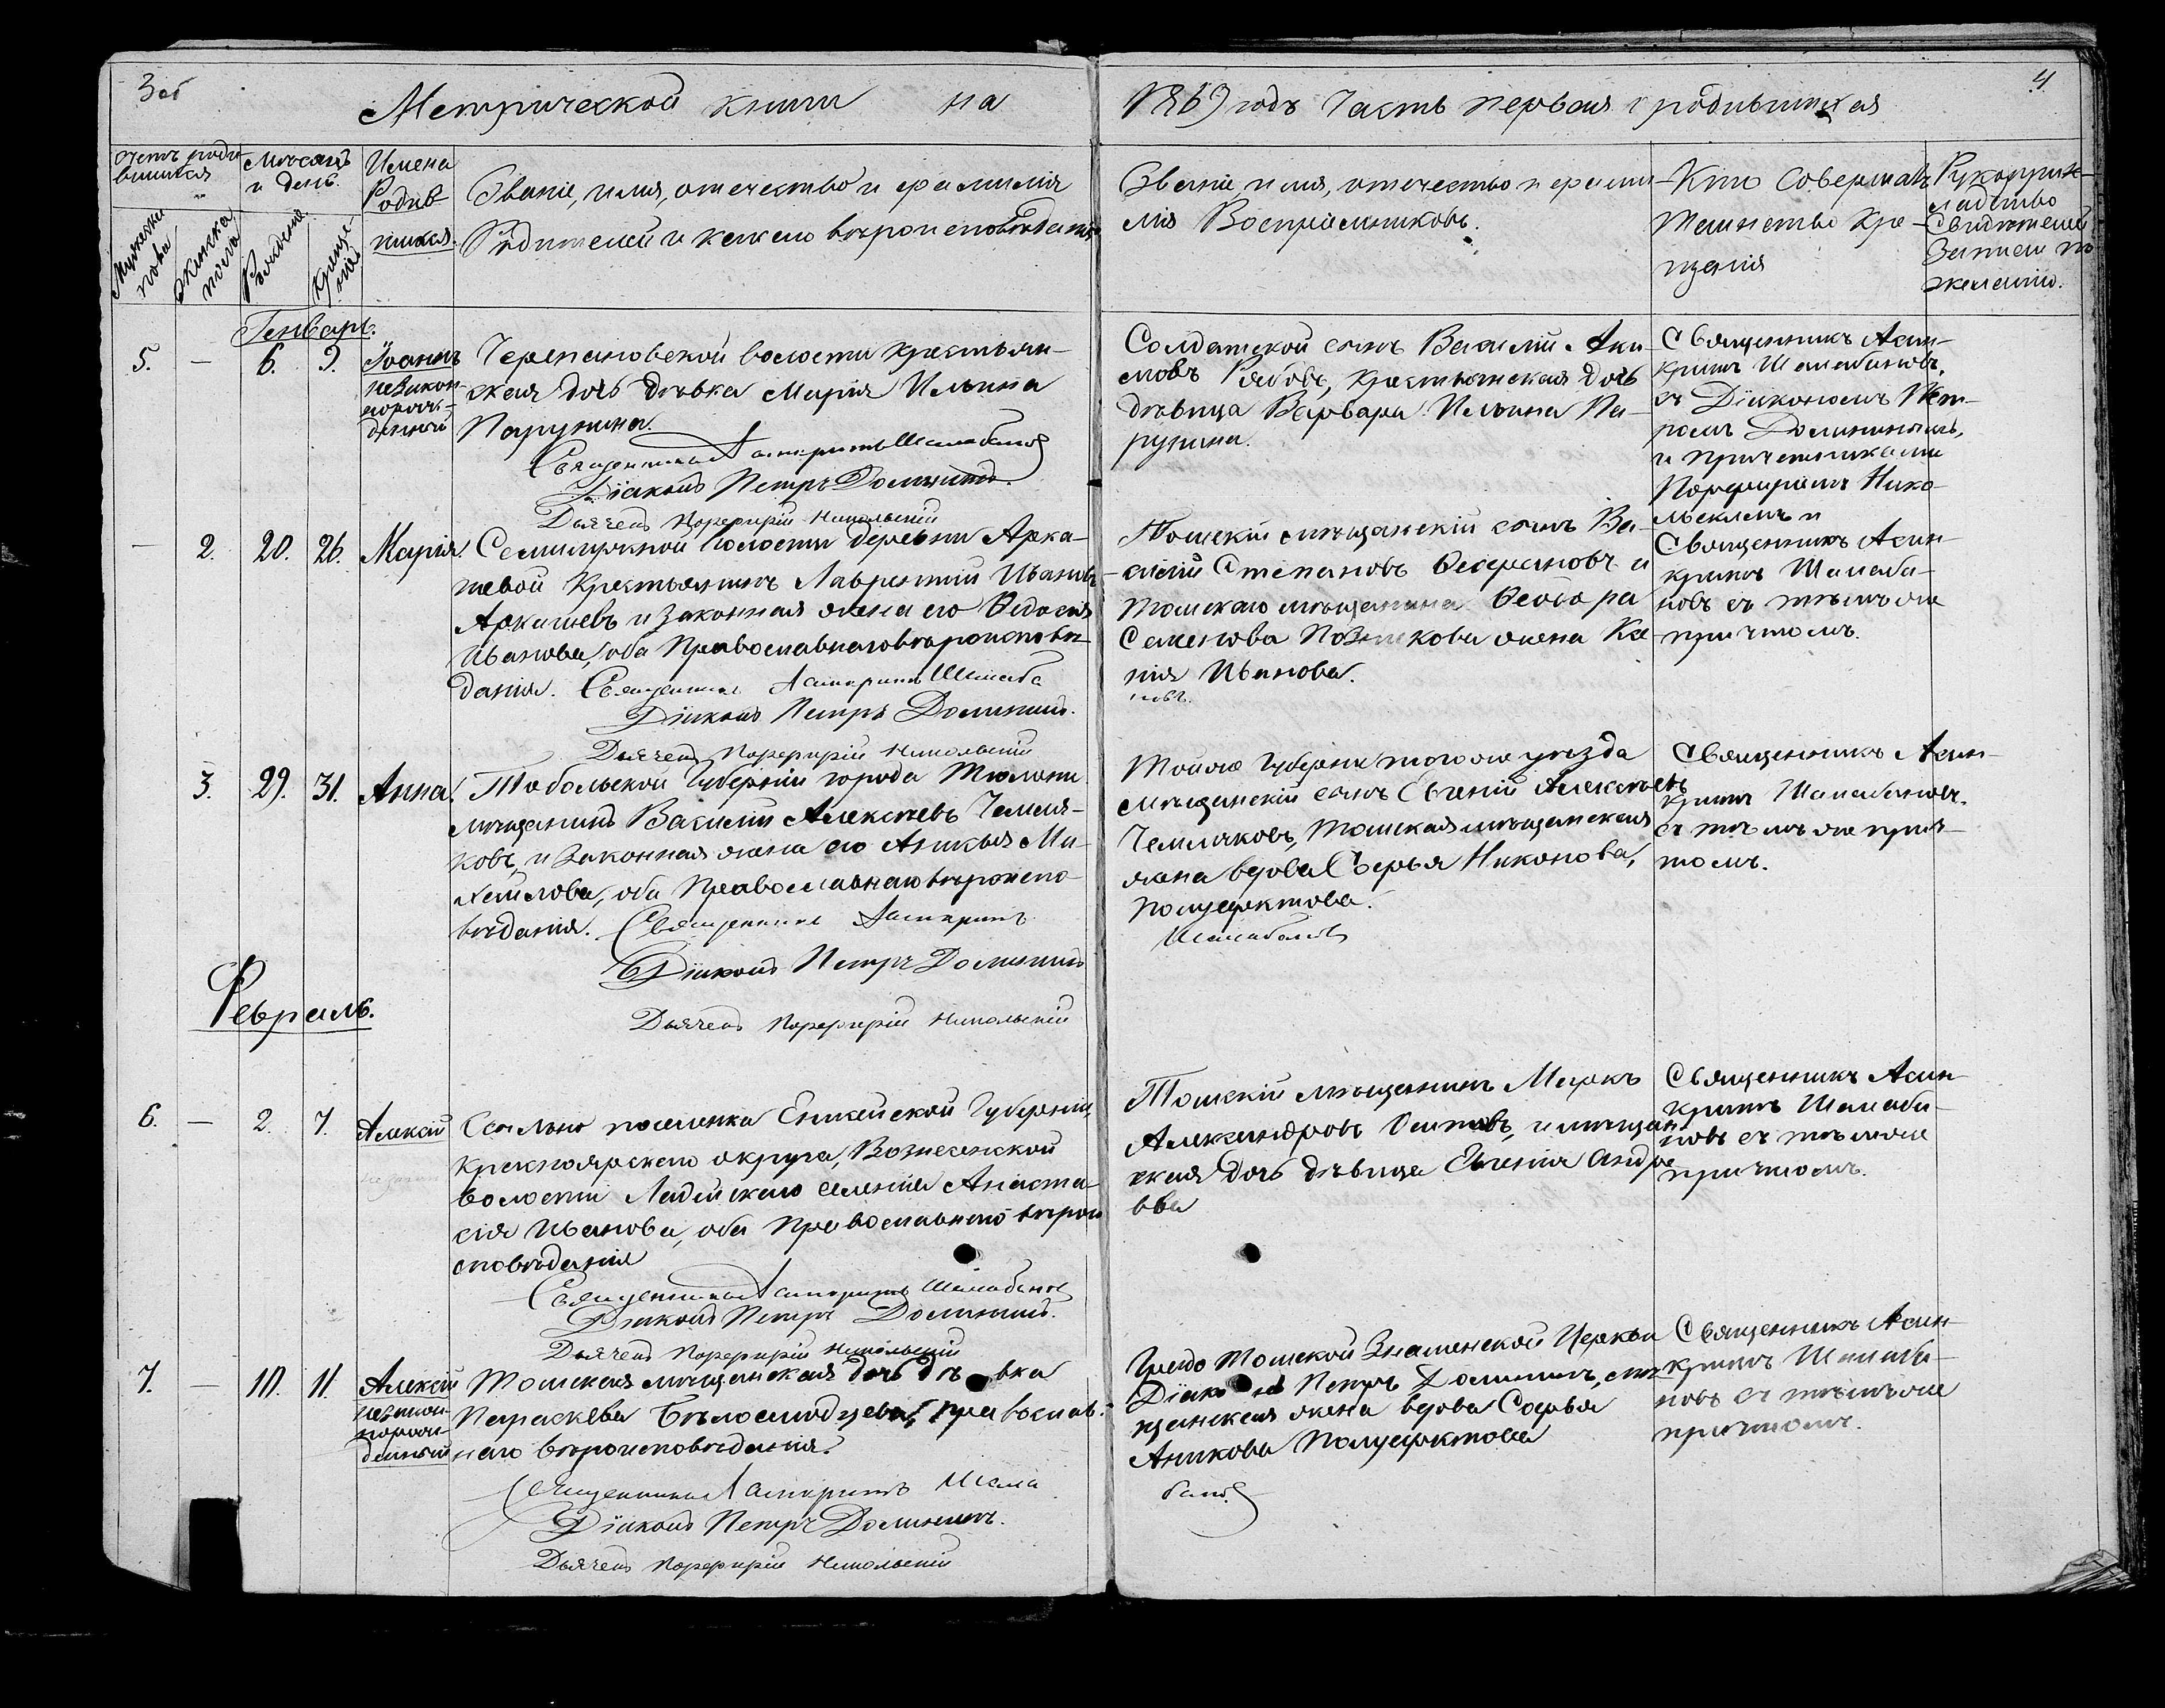 3об
4
Метрической книги на 1869 годъ Часть первая о родившихся
Счетъ роди-
вшихся
Мужеска
пола
Женска
пола
Мѣсяцъ
и день.
Рожденiя
Креще-
нiя
Имена
Родив-
шихся.
Званiе, имя, отечество и фамилiя
Родителей и какого вѣроисповѣданiя
Званiе, имя, отечество и фами-
лiя Воспрiемниковъ.
Кто Совершалъ
таинство Кре-
щенiя
Рукоприк-
ладство
Свидѣтелей
Записи по
желанiю.
Генварь.
5. — 6. 9. Iоаннъ
незакон-
норож-
денный
Черепановской волости крестьян-
ская дочь дѣвка Марiя Ильина
Парунина.
Священникъ Асинкритъ Шалабановъ
Дiаконъ Петръ Домининъ.
Дьячекъ Порфирiй Никольскiй
Солдатской сынъ Василiй Аки-
мовъ Рябовъ, крестьянская дочь
дѣвица Варвара Ильина Па-
рунина.
Священникъ Асин-
критъ Шалабановъ,
съ Дiакономъ Пет-
ромъ Доминнымъ,
и причетниками
Порфирiемъ Нико-
льскимъ и
— 2. 20. 26. Марiя.
Семилужной волости деревни Арка-
шевой Крестьянинъ Лаврентiй Ивановъ
Аркашевъ и законная жена его Федосiя
Иванова, оба Православнаго вѣроисповѣ-
данiя. Священникъ Асинкритъ Шалаба
новъ.
Дiаконъ Петръ Доминин.
Дьячекъ Порфирiй Никольскiй
Томскiй мѣщанскiй сынъ Ва-
силiй Степановъ и
Томскаго мѣщанина Феодора
Семенова жена Ксе-
нiя Иванова.
Священникъ Асин-
критъ Шалаба-
новъ съ тѣмъ же
причтомъ.
3. 29. 31. Анна.
Тобольской Губернiи города Тюмени
мѣщанинъ Василiй Алексѣевъ Чемля-
ковъ, и законная жена его Ми-
хайлова, оба Православнаго вѣроиспо-
вѣданiя. Священникъ Асинкритъ
Шалабановъ
Дiаконъ Петръ Доминин
Дьячекъ Порфирiй Никольскiй
Тойже Губернiи тогоже уѣзда
мѣщанскiй сынъ Евгенiй Алексѣевъ
Чемляковъ, Томская мѣщанская
жена вдова Софья Никонова,
Полуефктова.
Священникъ Асин-
критъ Шалабановъ.
съ тѣмъ же прич-
томъ.
Февраль.
6. — 2. 7. Алексiй
Ссыльно поселенка Енисейской Губернiи,
Красноярскаго округа, Вознесенской
волости Ладейскаго селенiя Анаста-
сiя Иванова, оба Православнаго вѣрои
сповѣданiя
Священникъ Асинкритъ Шалабановъ
Дiаконъ Петръ Доминин.
Дьячекъ Порфирiй Никольскiй
Томскiй мѣщанинъ Маркъ
Александровъ Осиповъ, и мѣщан
ская дочь дѣвица Евгенiя Андре
ева
Священникъ Асин-
критъ Шалаба-
новъ съ тѣмъже
причтомъ.
7. — 10. 11. Алексiй
незакон-
норож-
денный
Томская мѣщанская дочь дѣвка
Параскева Бѣлослюдцева, православ-
наго вѣроисповѣданiя.
Священникъ Асинкритъ Шала
бановъ
Дiаконъ Петръ Доминин.
Дьячекъ Порфирiй Никольскiй
Градо Томской Знаменской Церкви
Дiаконъ Петръ Доминин, мѣ-
щанская жена вдова Софья
Аникова Полуефктова
Священникъ Асин-
критъ Шалаба-
новъ съ тѣмъ же
причтомъ.